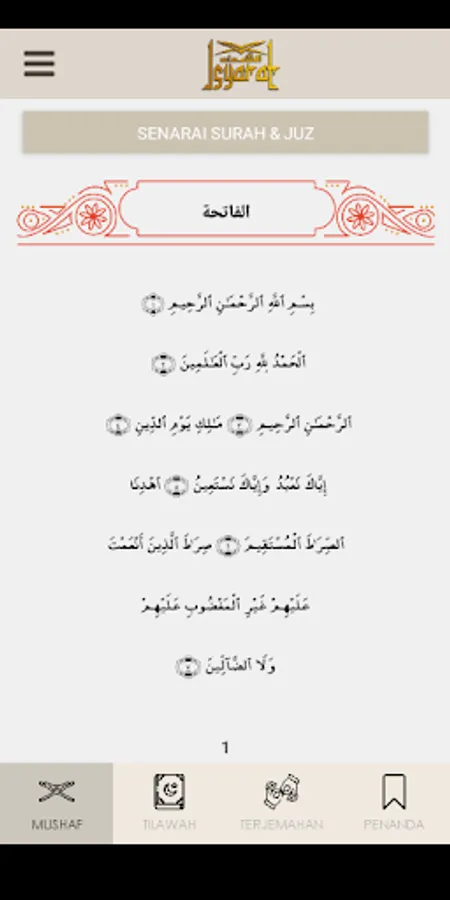 Isyarat
SENARAI SURAH & JUZ
الفاتحة
بِسْمِ ٱللَّهِ ٱلرَّحْمَٰنِ ٱلرَّحِيمِ ١
ٱلْحَمْدُ لِلَّهِ رَبِّ ٱلْعَٰلَمِينَ ٢
ٱلرَّحْمَٰنِ ٱلرَّحِيمِ ٣ مَٰلِكِ يَوْمِ ٱلدِّينِ ٤
إِيَّاكَ نَعْبُدُ وَإِيَّاكَ نَسْتَعِينُ ٥ ٱهْدِنَا
ٱلصِّرَٰطَ ٱلْمُسْتَقِيمَ ٦ صِرَٰطَ ٱلَّذِينَ أَنْعَمْتَ
عَلَيْهِمْ غَيْرِ ٱلْمَغْضُوبِ عَلَيْهِمْ
وَلَا ٱلضَّآلِّينَ ٧
1
MUSHAF
TILAWAH
TERJEMAHAN
PENANDA